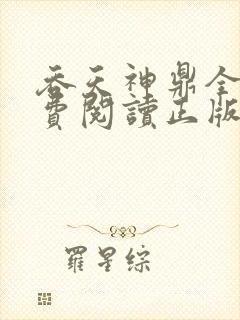 吞天神鼎全
費閱讀正版
羅星綜